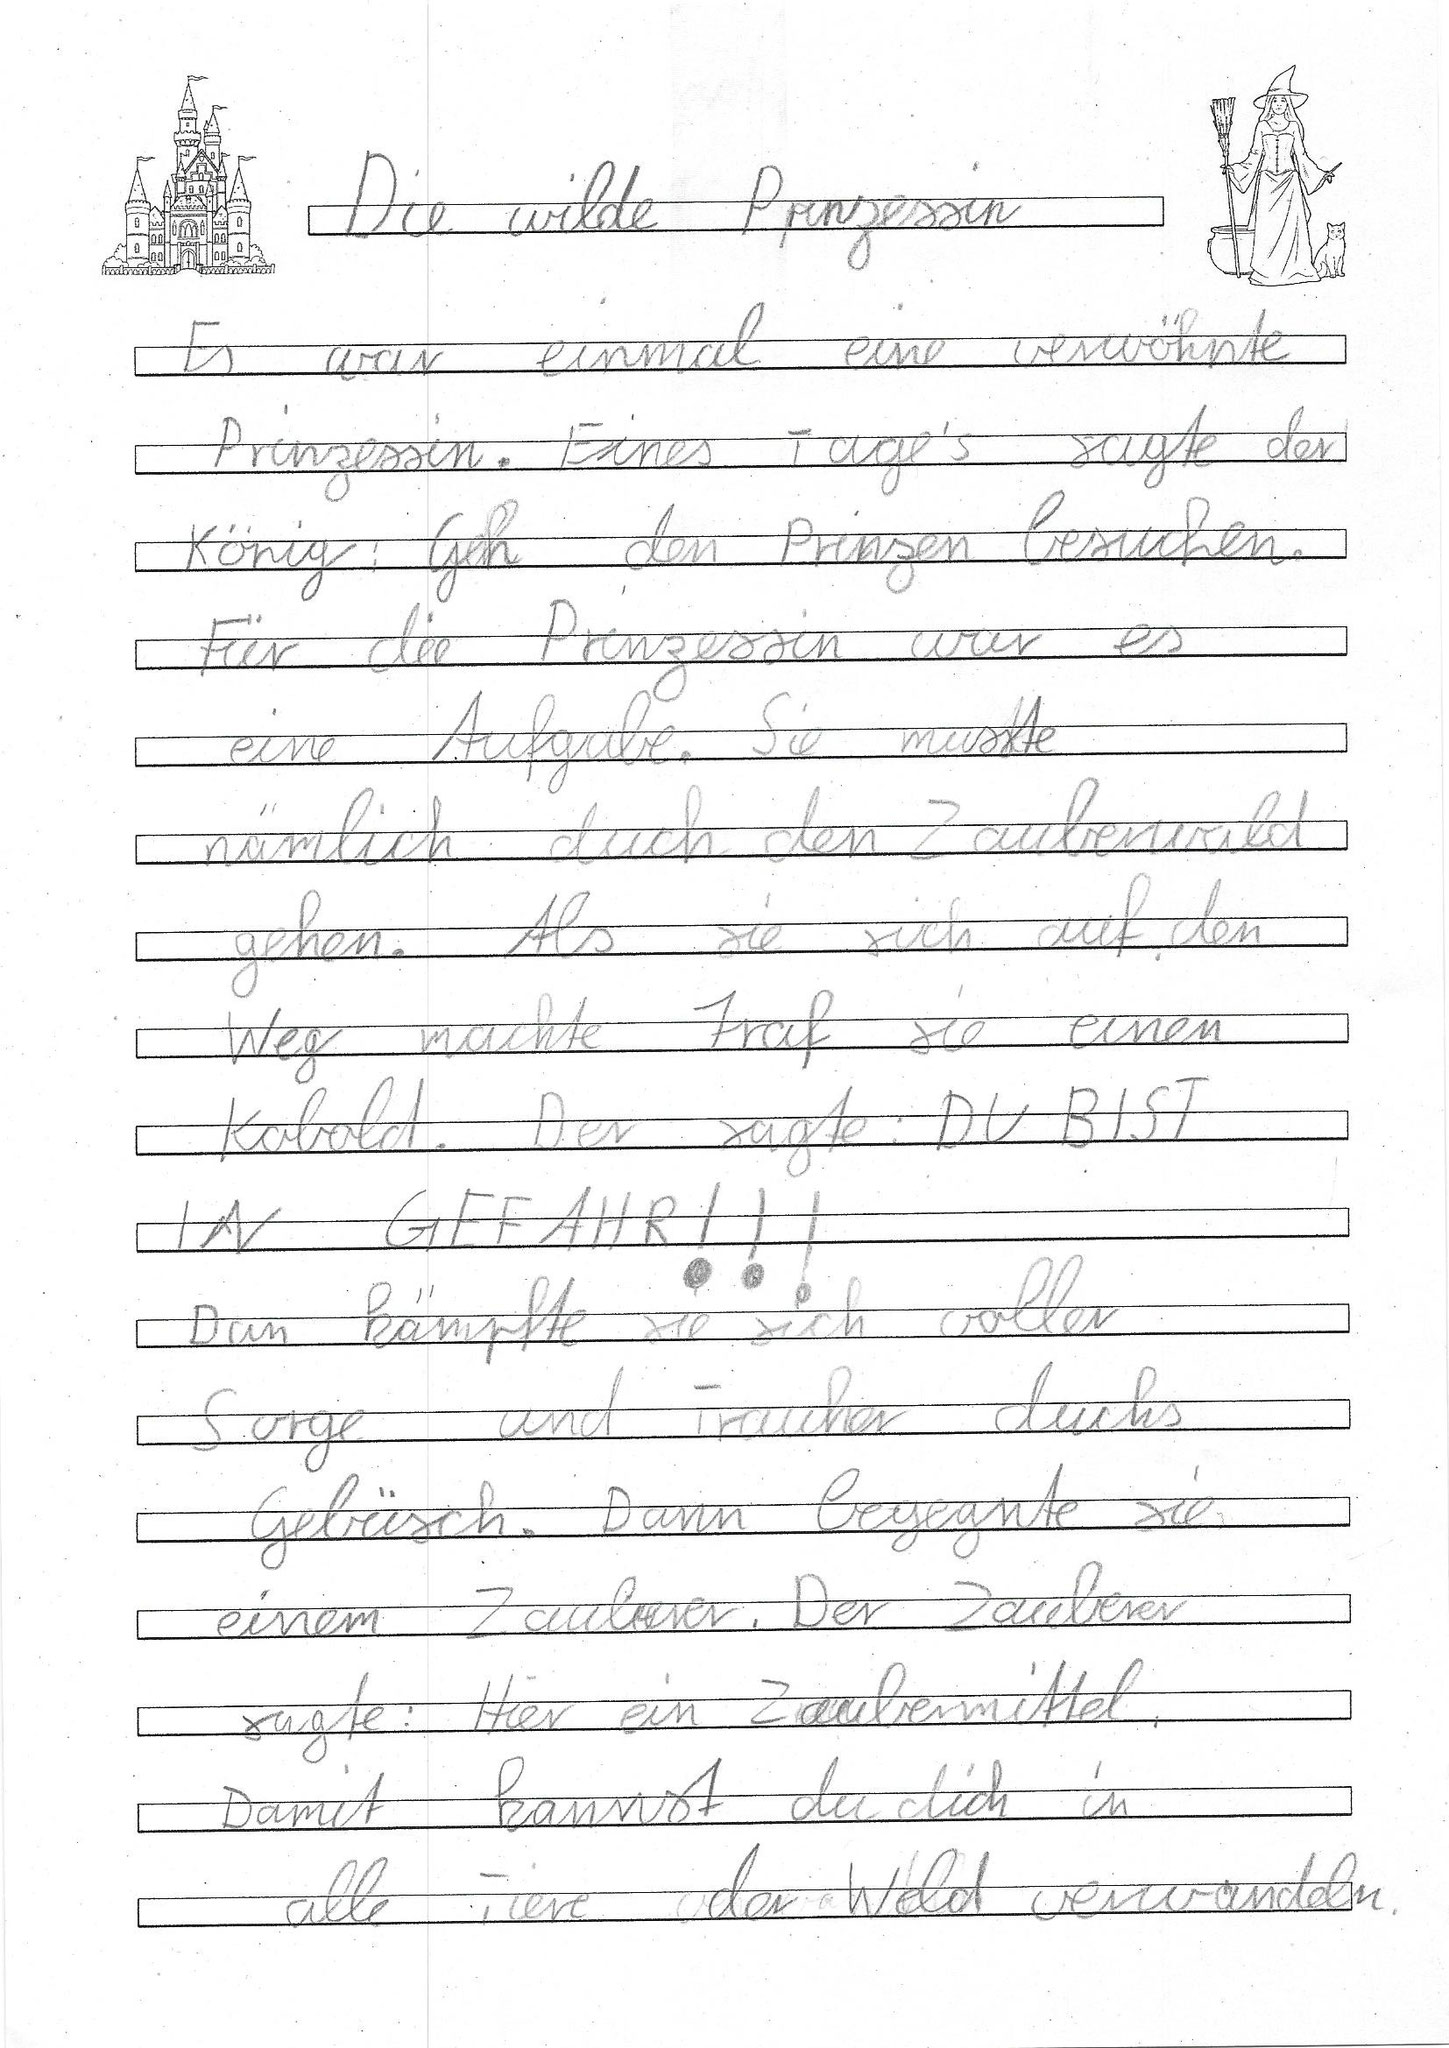 Die wilde Prinzessin
Es war einmal eine verwöhnte
Prinzessin. Eines Tage's sagte der
König: Geh den Prinzen besuchen.
Für die Prinzessin war es
eine Aufgabe. Sie musste
nämlich duch den Zauberwald
gehen. Als sie sich auf den
Weg machte Traf sie einen
Kobold. Der sagte: DU BIST
IN GEFAHR!!!
Dan kämpfte sie sich voller
Sorge und Traucher duchs
Gebüsch. Dann begegnte sie
einem Zauberer. Der Zauberer
sagte: Hier ein Zaubermittel.
Damit kannst du dich in
alle Tiere oder Weld verwandeln.